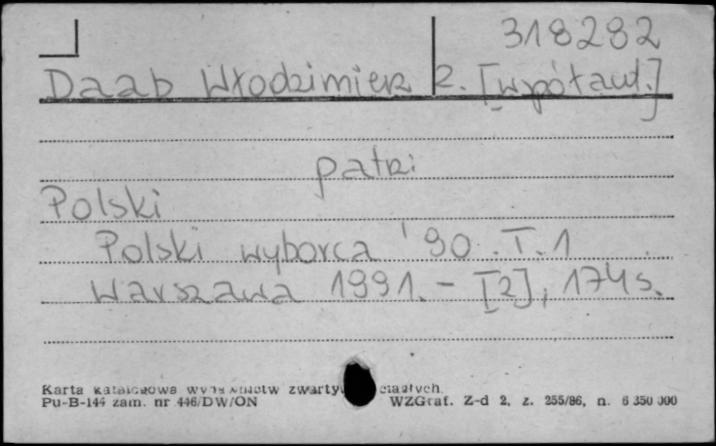 318282
Daab Włodzimierz 2. [współaut.]
patrz:
Polski
Polski wyborca '90. T. 1
Warszawa 1991. – [2], 174 s.
Karta katalogowa wydawnictw zwartych ciągłych
Pu-B-144 zam. nr 446/DW/ON WZGraf. Z-d 2, z. 255/86, n. 6 350 000